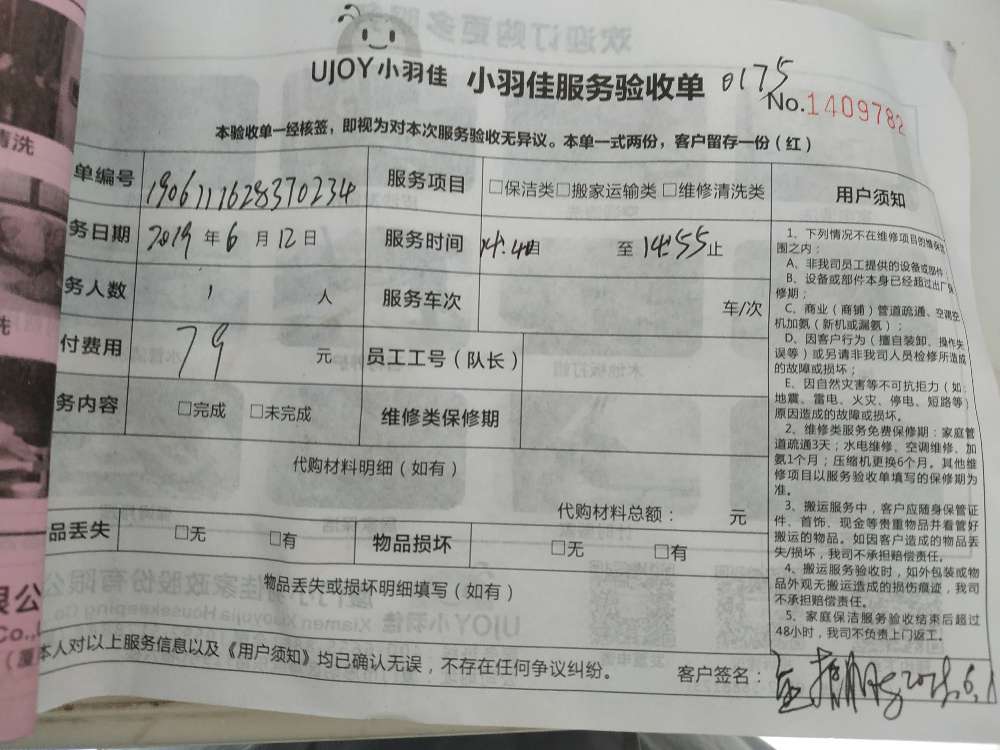 欢迎订购更多服务
UJOY小羽佳 小羽佳服务验收单 0175
No.1409782
本验收单一经核签，即视为对本次服务验收无异议。本单一式两份，客户留存一份（红）
清洗
单编号 1906111628370234 服务项目 □保洁类□搬家运输类□维修清洗类 用户须知
务日期 2019年6月12日 服务时间 14:40 至14:55止
务人数 1 人 服务车次 车/次
付费用 79 元 员工工号（队长）
务内容 □完成 □未完成 维修类保修期
代购材料明细（如有）
代购材料总额： 元
品丢失 □无 □有 物品损坏 □无 □有
物品丢失或损坏明细填写（如有）
1、下列情况不在维修项目的维保范
围之内：
A、非我司员工提供的设备或部件；
B、设备或部件本身已经超过出厂保
修期；
C、商业（商铺）管道疏通、空调空
机加氨（新机或漏氨）；
D、因客户行为（擅自装卸、操作失
误等）或另请非我司人员检修所造成
的故障或损坏；
E、因自然灾害等不可抗拒力（如：
地震、雷电、火灾、停电、短路等）
原因造成的故障或损坏。
2、维修类服务免费保修期：家庭管
道疏通3天；水电维修、空调维修、加
氨1个月；压缩机更换6个月。其他维
修项目以服务验收单填写的保修期为
准。
3、搬运服务中，客户应随身保管证
件、首饰、现金等贵重物品并看管好
搬运的物品。如因客户造成的物品丢
失/损坏，我司不承担赔偿责任。
4、搬运服务验收时，如外包装或物
品外观无搬运造成的损伤痕迹，我司
不承担赔偿责任。
5、家庭保洁服务验收结束后超过
48小时，我司不负责上门返工。
限公
Co.,
（厦
本人对以上服务信息以及《用户须知》均已确认无误，不存在任何争议纠纷。 客户签名：